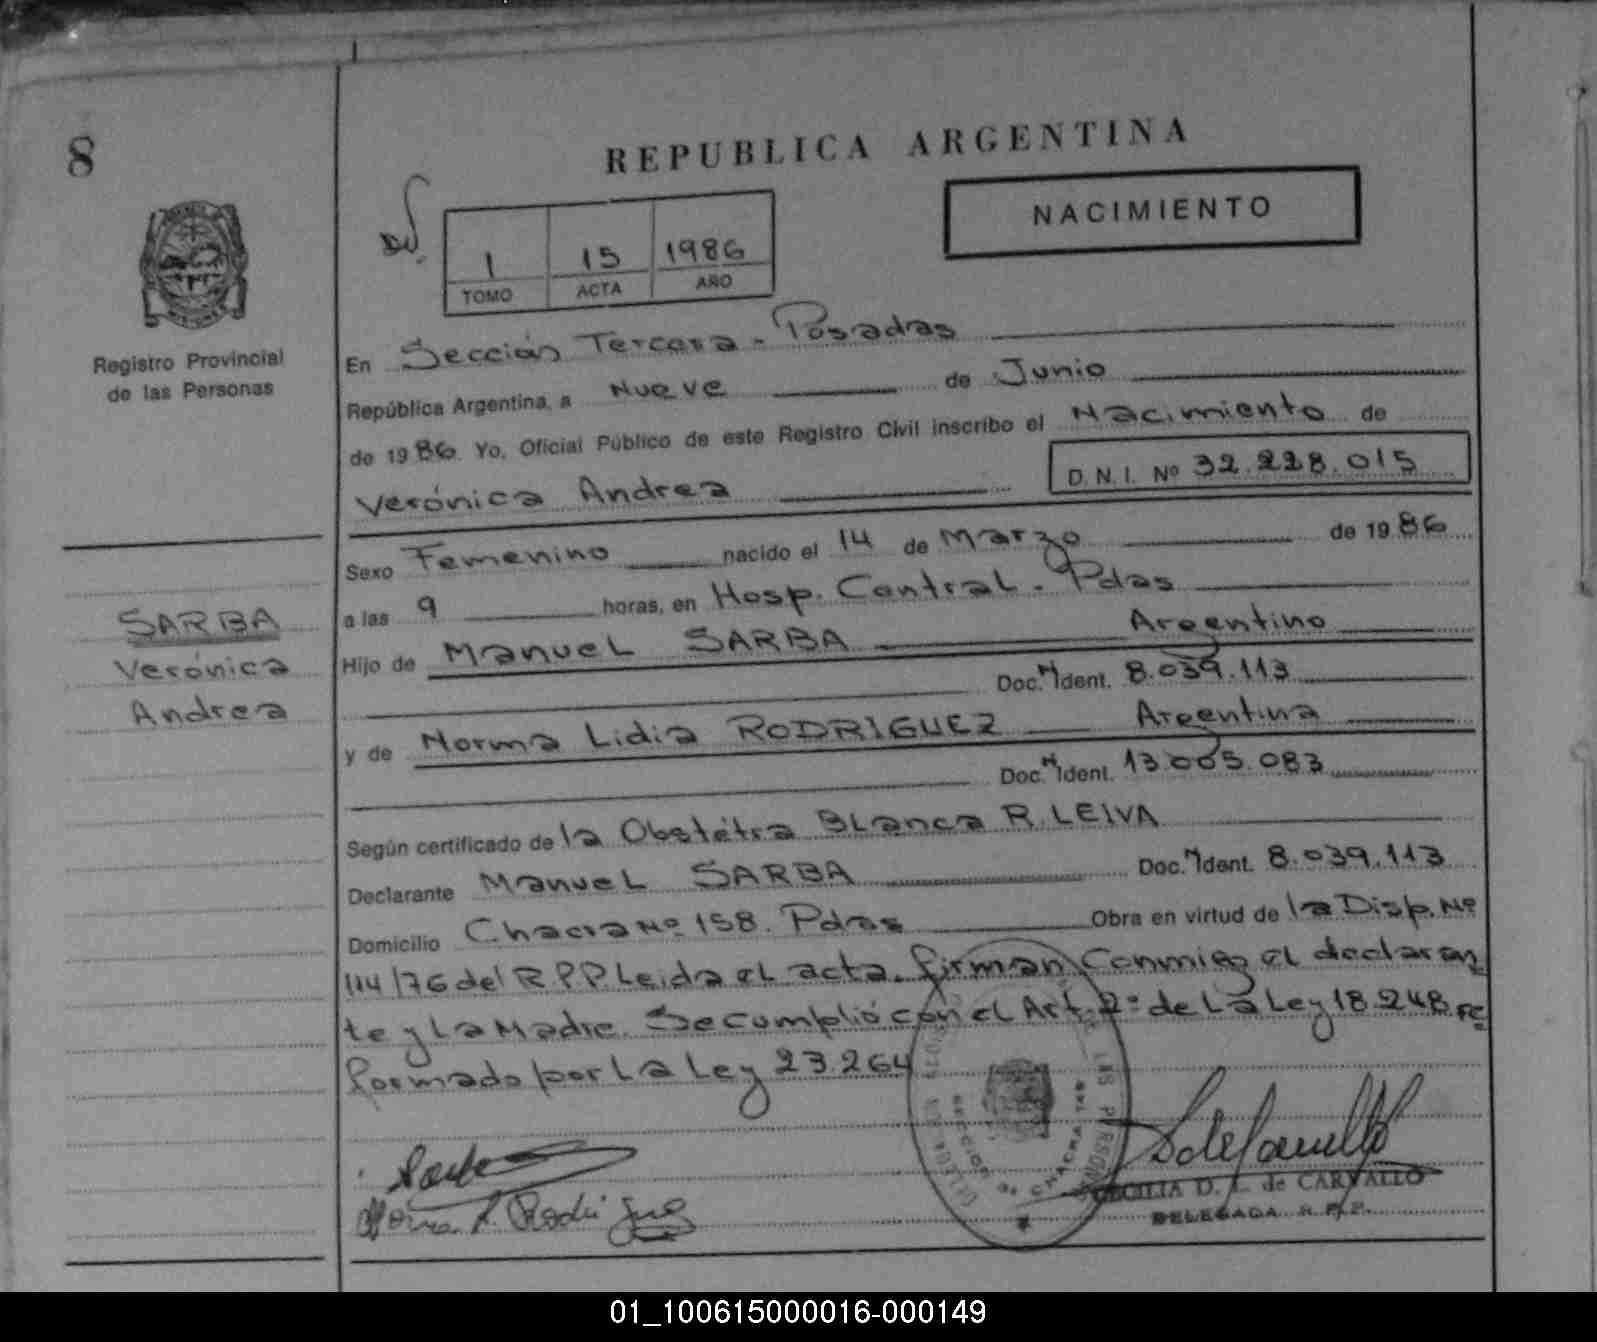 8
REPUBLICA ARGENTINA
NACIMIENTO
1 15 1986
TOMO ACTA AÑO
Registro Provincial
de las Personas
En Sección Tercera - Posadas
República Argentina, a Nueve de Junio
de 1986. Yo, Oficial Público de este Registro Civil inscribo el Nacimiento de
D. N. I. Nº 32.228.015
Verónica Andrea
Sexo Femenino nacido el 14 de Marzo de 1986
a las 9 horas, en Hosp. Central - Pdas
SARBA
Verónica
Andrea
Hijo de Manuel SARBA Argentino
Doc. N Ident. 8.039.113
y de Norma Lidia RODRIGUEZ Argentina
Doc. N Ident. 13.005.083
Según certificado de la Obstétra Blanca R. LEIVA
Declarante Manuel SARBA Doc. N Ident. 8.039.113
Domicilio Chacra Nº 158. Pdas Obra en virtud de la Disp. Nº
114/76 del R.P.P. Leida el acta. firman Conmigo el declaran
te y la Madre. Se cumplió con el Art. 2º de La Ley 18.248 Re
formado por La Ley 23.264
SECCION 3ª CHACRA 148
LAS PERSONAS
Norma L. Rodriguez
CECILIA D. L. de CARVALLO
DELEGADA R. P. P.
01_100615000016-000149